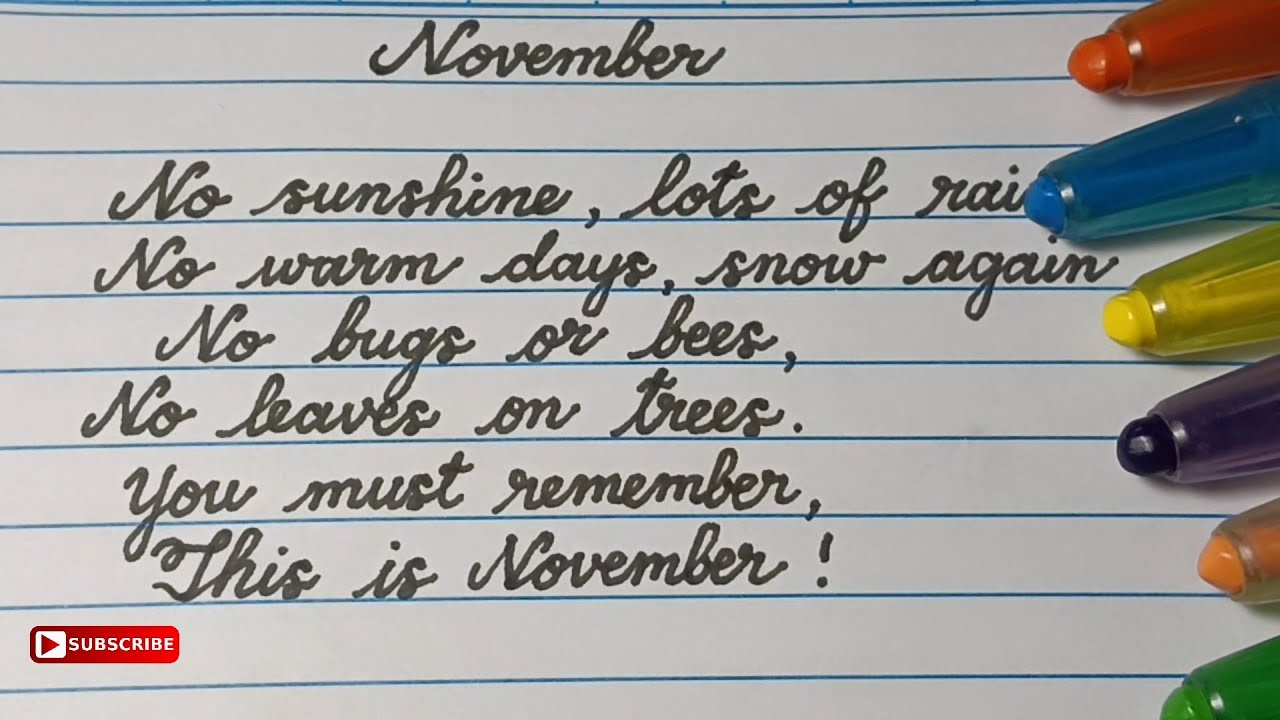 November
No sunshine, lots of rai
No warm days, snow again
No bugs or bees,
No leaves on trees.
You must remember,
This is November!
SUBSCRIBE